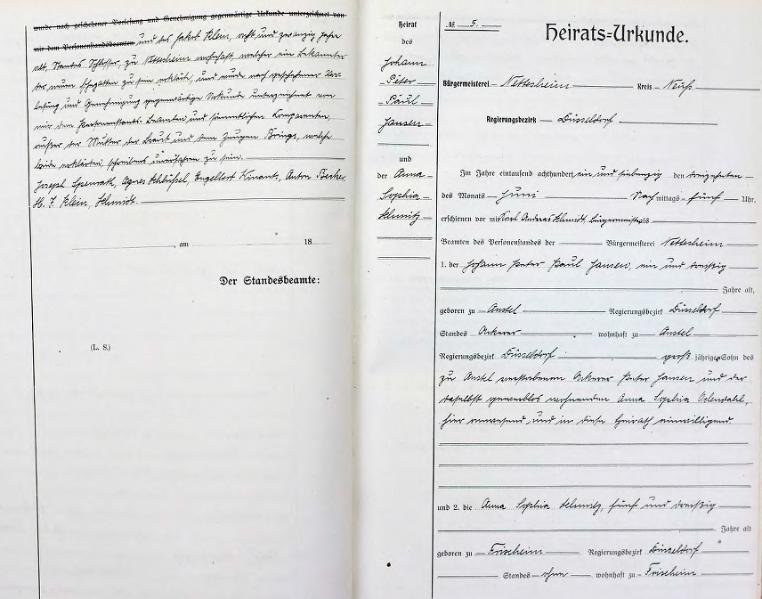 wurde nach geschehener Vorlesung und Genehmigung gegenwärtige Urkunde unterzeichnet von
mir dem Personenstandsbeamten und des Jakob Klein, acht und zwanzig Jahre
alt, Standes Schlosser, zu Nettesheim wohnhaft, welcher ein Bekannter
der neuen Ehegatten zu sein erklärt, und wurde nach geschehener Vor-
lesung und Genehmigung gegenwärtige Urkunde unterzeichnet von
mir dem Personenstands Beamten und sämmtlichen Comparenten
außer der Mutter der Braut und dem Zeugen, welche
beide erklärten schreibens unerfahren zu sein.
Joseph, Agnes, Engelbert, Anton
H. J. Klein, Schmidt.
, am 18
Der Standesbeamte:
(L. S.)
Heirat
des
Johann
Peter
Paul
Jansen
und
der Anna
Sophia
Schmitz
№ 5.
Heirats-Urkunde.
Bürgermeisterei Nettesheim Kreis Neuß
Regierungsbezirk Düsseldorf
Im Jahre eintausend achthundert ein und siebenzig den dreizehnten
des Monats Juni Nachmittags fünf Uhr,
erschienen vor mir Karl Andreas Schmidt, Bürgermeister als
Beamten des Personenstandes der Bürgermeisterei Nettesheim
1. der Johann Peter Paul Jansen, ein und dreißig
Jahre alt,
geboren zu Anstel Regierungsbezirk Düsseldorf
Standes Ackerer wohnhaft zu Anstel
Regierungsbezirk Düsseldorf groß jähriger Sohn des
zu Anstel verstorbenen Ackerer Peter Jansen und der
daselbst gewerblos wohnenden Anna Sophia
hier anwesend und in diese Heirath einwilligend.
und 2. die Anna Sophia Schmitz, fünf und dreißig
Jahre alt
geboren zu Frixheim Regierungsbezirk Düsseldorf
Standes ohne wohnhaft zu Frixheim